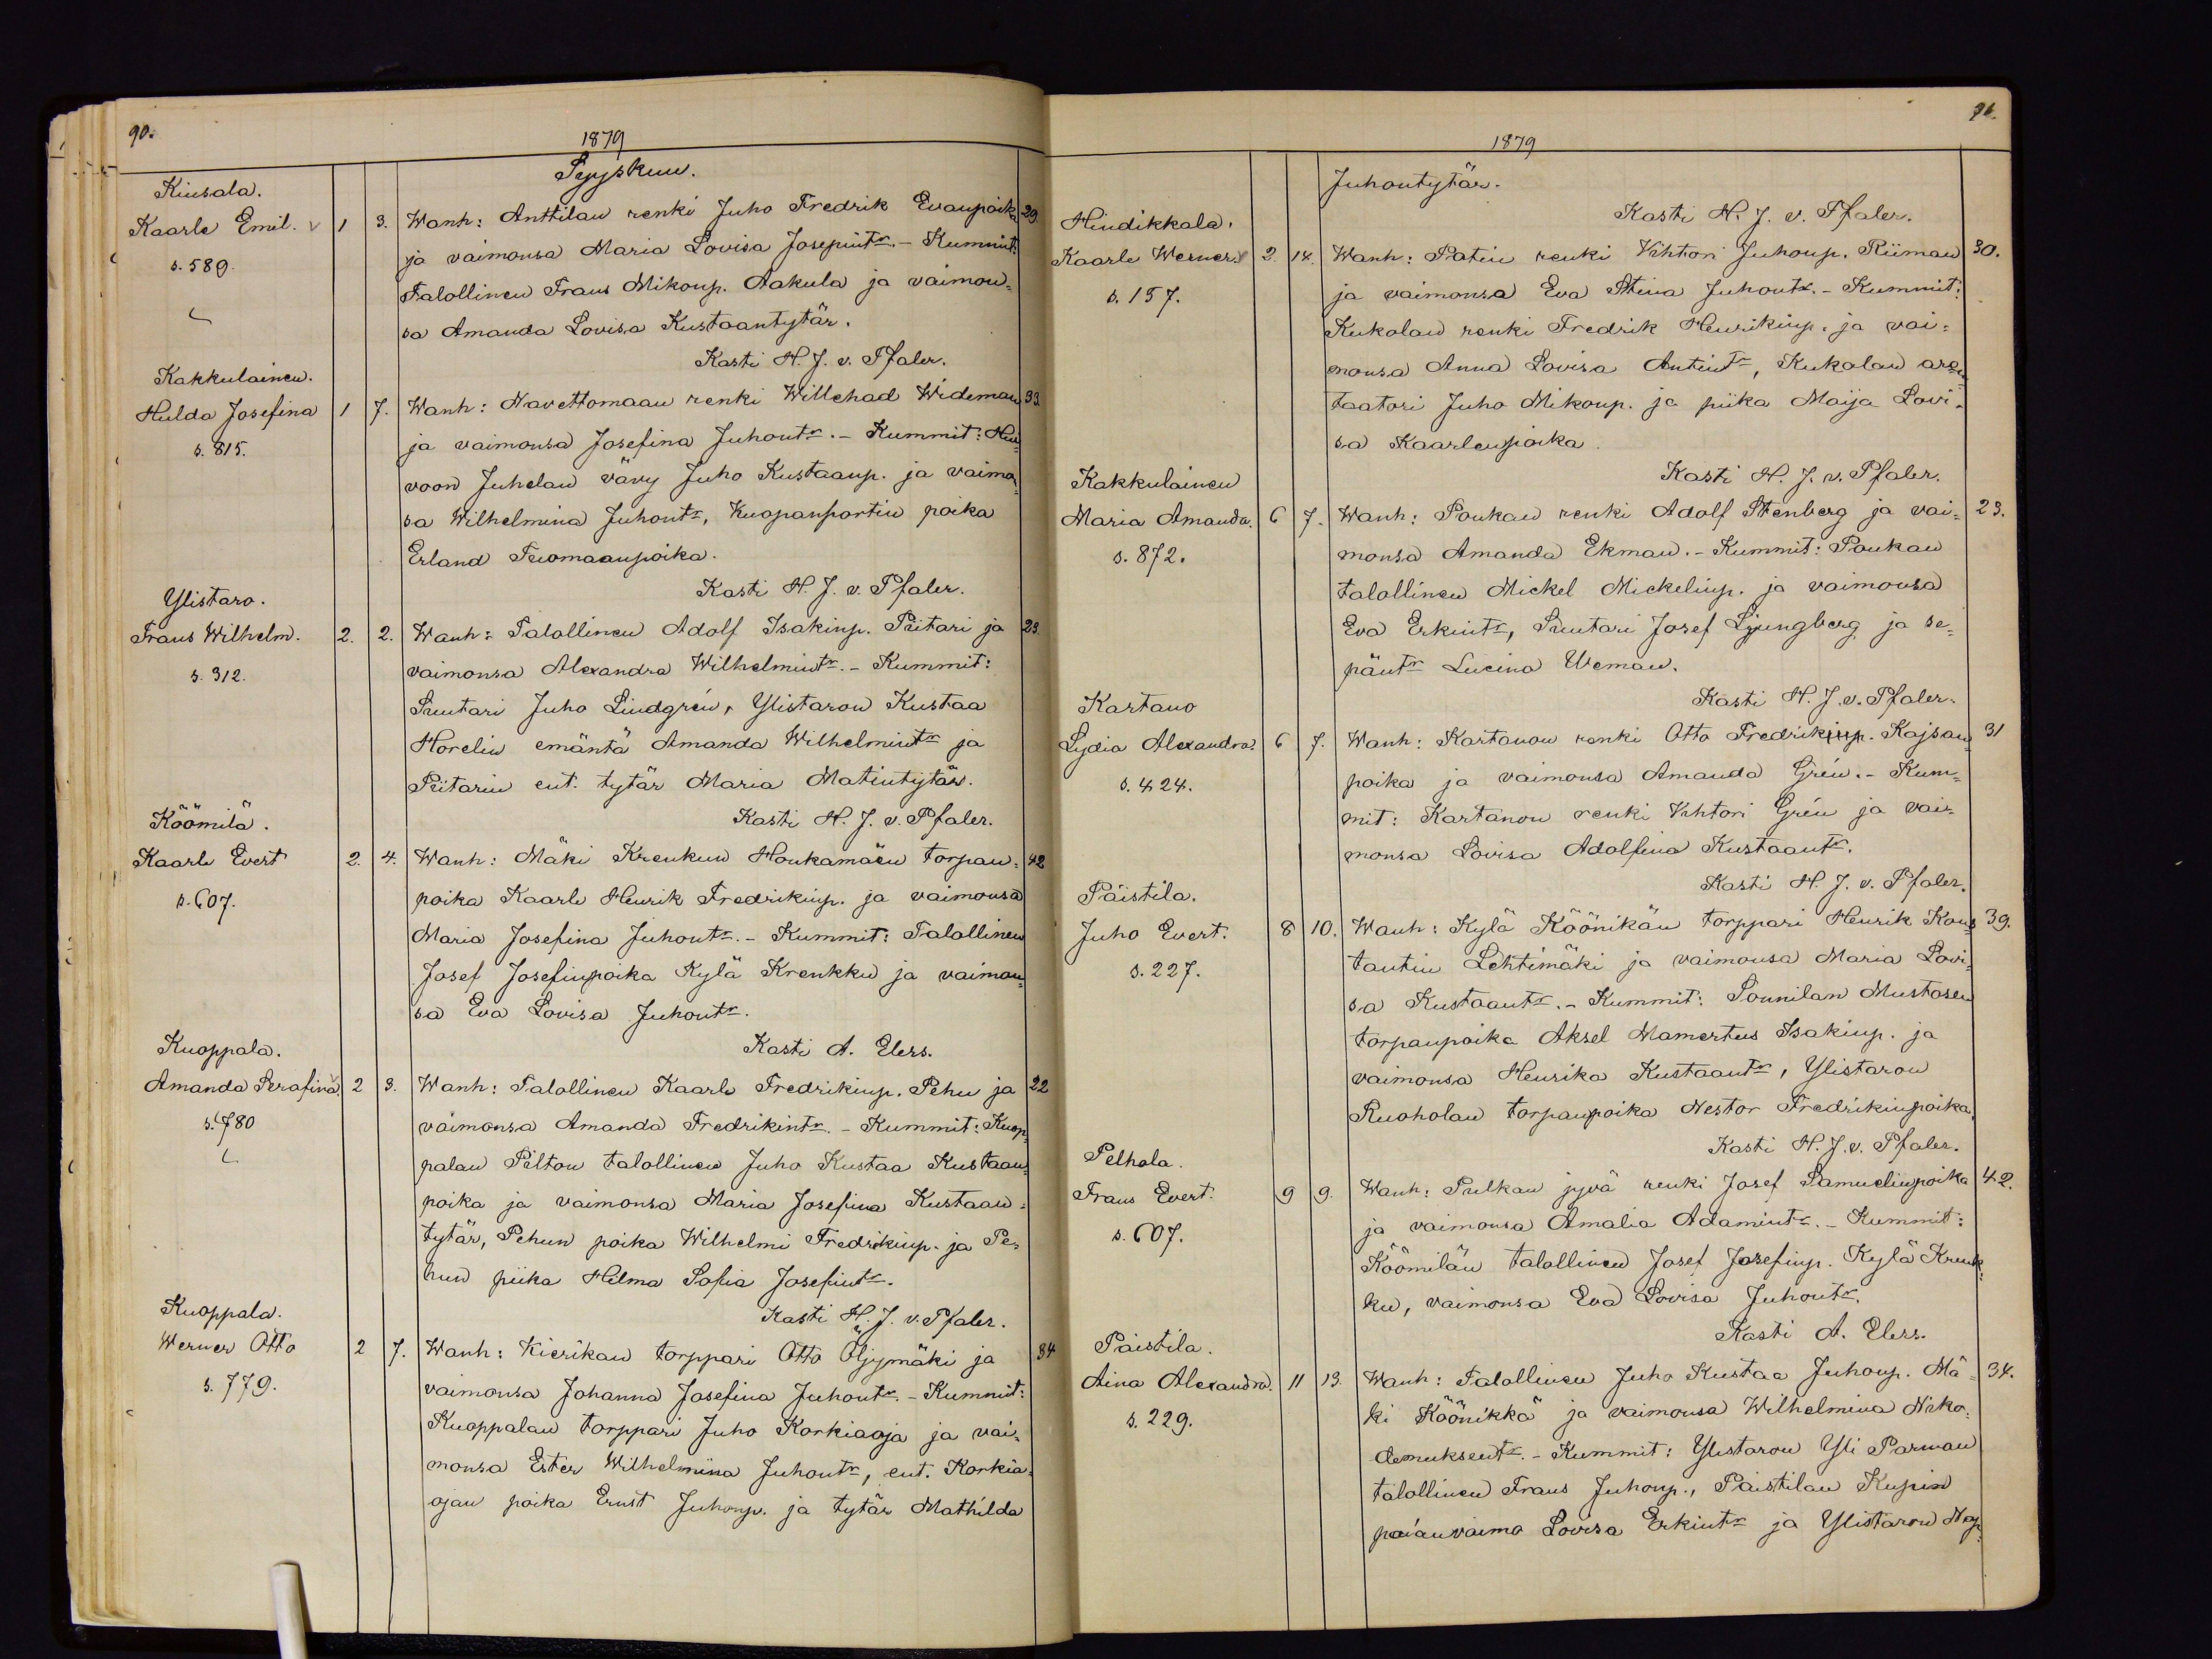 90.
1879
Syyskuu.
Kiusala.
Kaarle Emil. v 1 3. Wanh: Anttilan renki Juho Fredrik Evanpoika 29.
s. 589. ja vaimonsa Maria Lovisa Josepintr. - Kummit:
Talollinen Frans Mikonp. Aakula ja vaimon=
sa Amanda Lovisa Kustaantytär.
Kasti H. J. v. Pfaler.
Kakkulainen.
Hulda Josefina 1 7. Wanh: Navettomaan renki Willehad Wideman 33.
s. 815. ja vaimonsa Josefina Juhontr. - Kummit: Hu
voon Juhelan vävy Juho Kustaanp. ja vaimon=
sa Wilhelmina Juhontr, Kuopanportin poika
Erland Tuomaanpoika.
Kasti H. J. v. Pfaler.
Ylistaro.
Frans Wilhelm. 2. 2. Wanh: Talollinen Adolf Isakinp. Piitari ja 23.
s. 312. vaimonsa Alexandra Wilhelmintr. - Kummit:
Suutari Juho Lindgrén, Ylistaron Kustaa
Horelin emäntä Amanda Wilhelmintr ja
Piitarin ent. tytär Maria Matintytär.
Kasti H. J. v. Pfaler.
Köömilä.
Kaarle Evert 2. 4. Wanh: Mäki Krenkun Honkamäen torpan= 42
s. 607. poika Kaarle Henrik Fredrikinp. ja vaimonsa
Maria Josefina Juhontr. - Kummit: Talollinen
Josef Josefinpoika Kylä Krenkku ja vaimon=
sa Eva Lovisa Juhontr.
Kasti A. Elers.
Kuoppala.
Amanda Serafina. v 2 3. Wanh: Talollinen Kaarle Fredrikinp. Pehu ja 22
s. 780 vaimonsa Amanda Fredrikintr. - Kummit: Kuop=
palan Pilton talollinen Juho Kustaa Kustaan=
poika ja vaimonsa Maria Josefina Kustaan=
tytär, Pehun poika Wilhelmi Fredrikinp. ja Pe=
hun piika Hilma Sofia Josefintr.
Kasti H. J. v. Pfaler.
Kuoppala.
Werner Otto 2 7. Wanh: Kierikan torppari Otto Öljymäki ja 34
s. 779. vaimonsa Johanna Josefina Juhontr. - Kummit:
Kuoppalan torppari Juho Korkiaoja ja vai=
monsa Ester Wilhelmina Juhontr, ent. Korkia=
ojan poika Ernst Juhonp. ja tytär Mathilda
91.
1879
Juhontytär.
Kasti H. J. v. Pfaler.
Hindikkala.
Kaarle Werner. v 2. 14. Wanh: Patin renki Vihtori Juhonp. Riiman 30.
s. 157. ja vaimonsa Eva Stina Juhontr. - Kummit:
Kukolan renki Fredrik Henrikinp. ja vai=
monsa Anna Lovisa Antintr, Kukolan aren=
taatori Juho Mikonp. ja piika Maija Lovi=
sa Kaarlenpoika.
Kasti H. J. v. Pfaler.
Kakkulainen
Maria Amanda. 6 7. Wanh: Poukan renki Adolf Stenberg ja vai= 23.
s. 872. monsa Amanda Ekman. - Kummit: Poukan
talollinen Mickel Mickelinp. ja vaimonsa
Eva Erkintr, Suutari Josef Ljungberg ja se=
päntr Lucina Weman.
Kasti H. J. v. Pfaler.
Kartano
Lydia Alexandra. 6 7. Wanh: Kartanon renki Otto Fredrikinp. Kajsan= 31
s. 424. poika ja vaimonsa Amanda Grén. - Kum=
mit: Kartanon renki Vihtori Grén ja vai=
monsa Lovisa Adolfina Kustaantr.
Kasti H. J. v. Pfaler.
Päistilä.
Juho Evert. 8 10. Wanh: Kylä Köönikän torppari Henrik Kons= 39.
s. 227. tantin Lehtimäki ja vaimonsa Maria Lovi=
sa Kustaantr. - Kummit: Sonnilan Mustosen
torpanpoika Aksel Mamertus Isakinp. ja
vaimonsa Henrika Kustaantr, Ylistaron
Ruoholan torpanpoika Nestor Fredrikinpoika.
Kasti H. J. v. Pfaler.
Pelhola.
Frans Evert. 9 9. Wanh: Pulkan jyvä renki Josef Samuelinpoika 42.
s. 607. ja vaimonsa Amalia Adamintr. - Kummit:
Köömilän talollinen Josef Josefinp. Kylä Krenk=
ku, vaimonsa Eva Lovisa Juhontr.
Kasti A. Elers.
Päistilä.
Aina Alexandra. 11 13. Wanh: Talollinen Juho Kustaa Juhonp. Mä= 34.
s. 229. ki Köönikkä ja vaimonsa Wilhelmina Niko=
demuksentr. - Kummit: Ylistaron Yli Parwan
talollinen Frans Juhonp., Päistilän Kupin
pojanvaimo Lovisa Erkintr ja Ylistaron Nap=